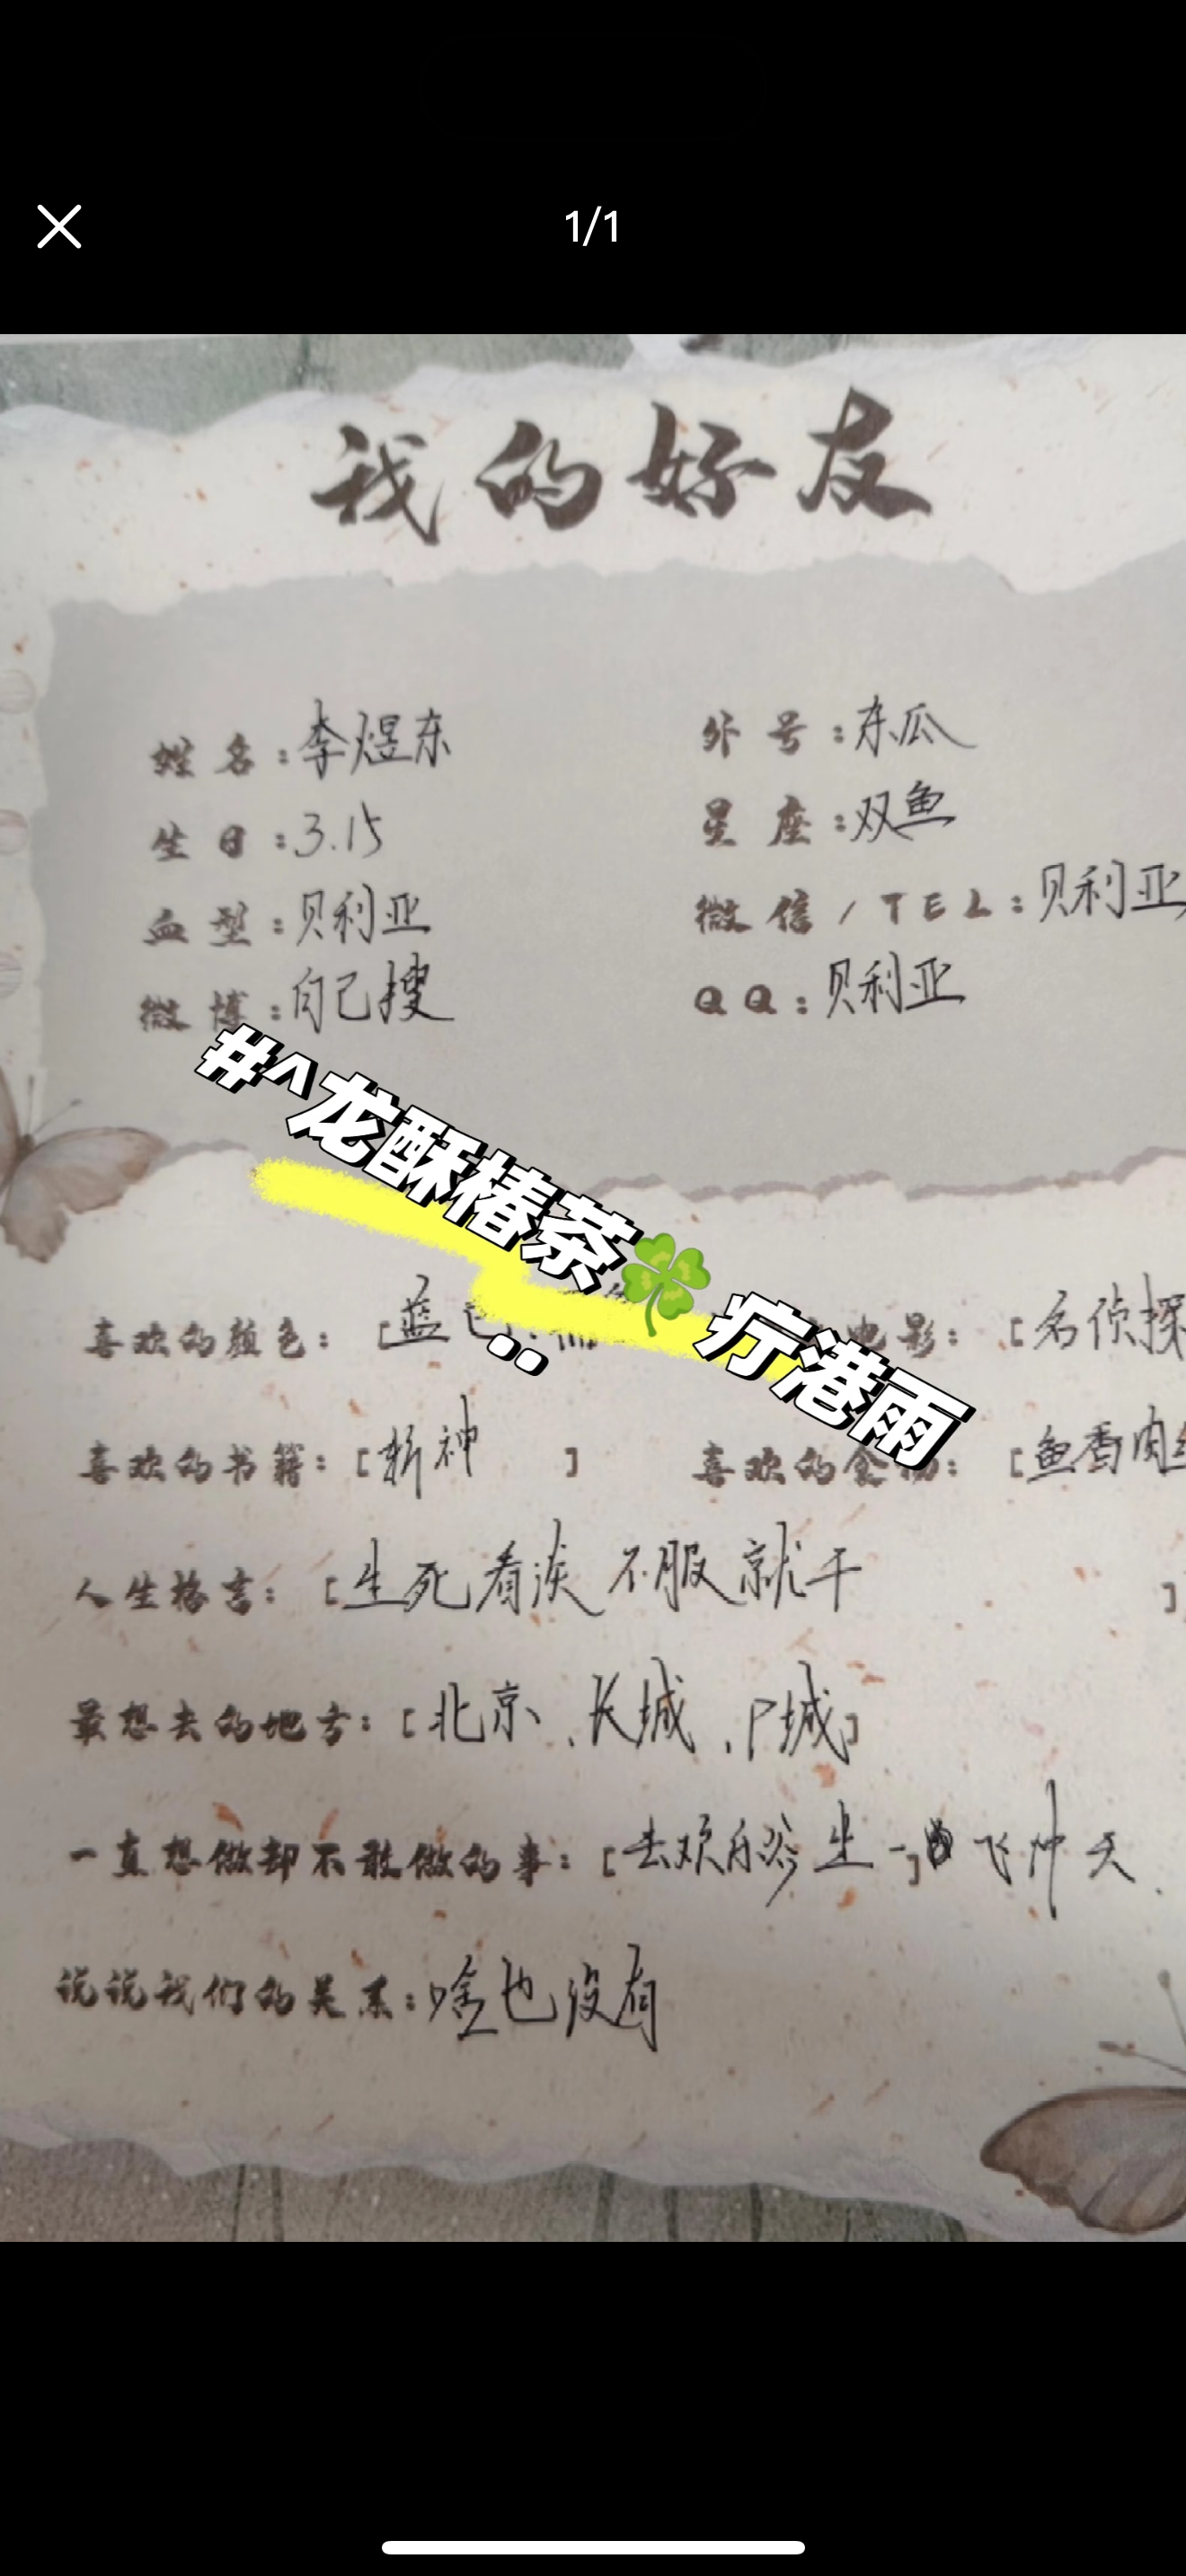 1/1
我的好友
姓名:李煜东 外号:东瓜
生日:3.15 星座:双鱼
血型:贝利亚 微信/TEL:贝利亚
微博:自己搜 QQ:贝利亚
#^龙酥椿茶🍀疔港雨
喜欢的颜色:[蓝 电影:[名侦探
喜欢的书籍:[斩神] 喜欢的食物:[鱼香肉
人生格言:[生死看淡 不服就干]
最想去的地方:[北京、长城、P城]
一直想做却不敢做的事:[去欢乐谷坐一]飞冲天.
说说我们的关系:啥也没有